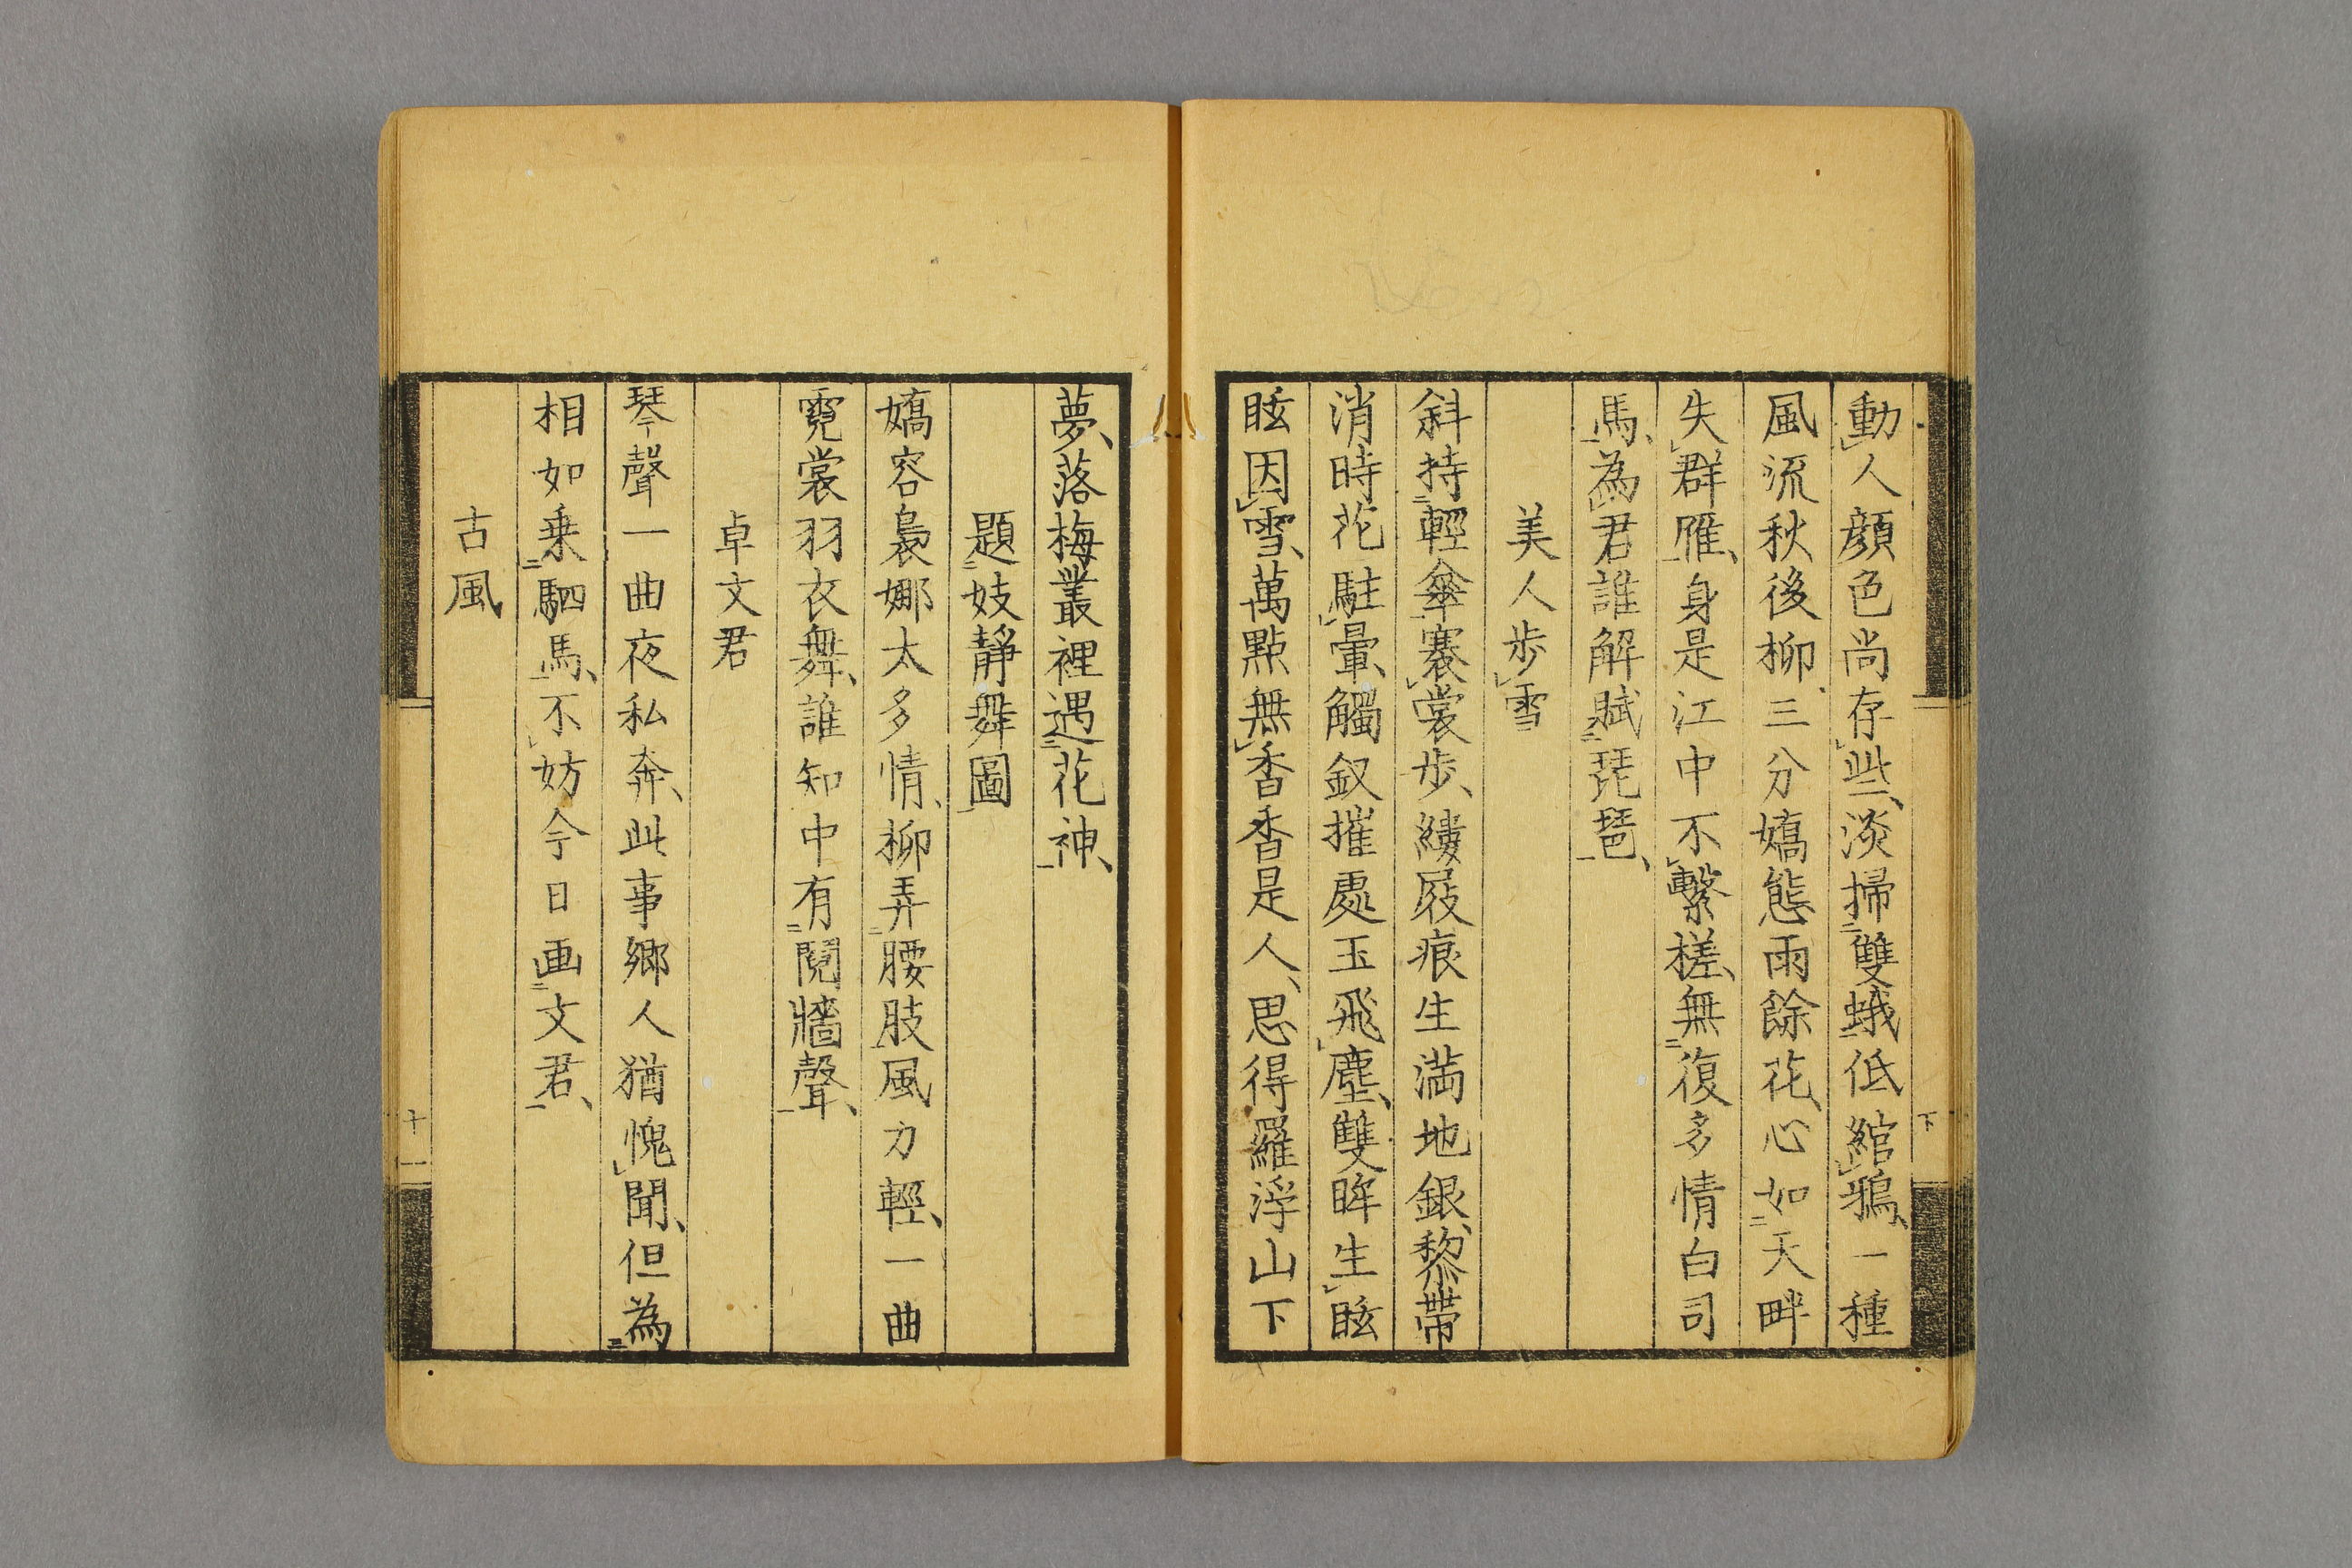 動人顔色尚存些、淡掃雙蛾低綰鴉、一種
風流秋後柳三分嬌態雨餘花、心如天畔
失群雁、身是江中不繫槎、無復多情白司
馬、為君誰解賦琵琶、
美人歩雪
斜持輕傘褰裳歩、縷屐痕生満地銀、黎帶
消時花駐暈、觸釵摧處玉飛塵、雙眸生眩
眩因雪、萬點無香香是人、思得羅浮山下
下
夢、落梅叢裡遇花神、
題妓靜舞圖
嬌容裊娜太多情、柳弄腰肢風力輕、一曲
霓裳羽衣舞、誰知中有鬩牆聲、
卓文君
琴聲一曲夜私奔、此事郷人猶愧聞、但為
相如乗駟馬、不妨今日画文君、
古風
十一